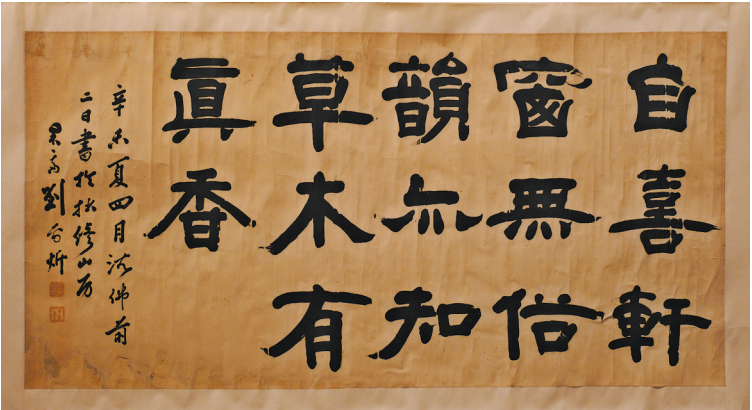 自喜軒
窗無俗
韻亦知
草木有
眞香
辛未夏四月浴佛前
二日書於拙修山房
果齋劉尔炘